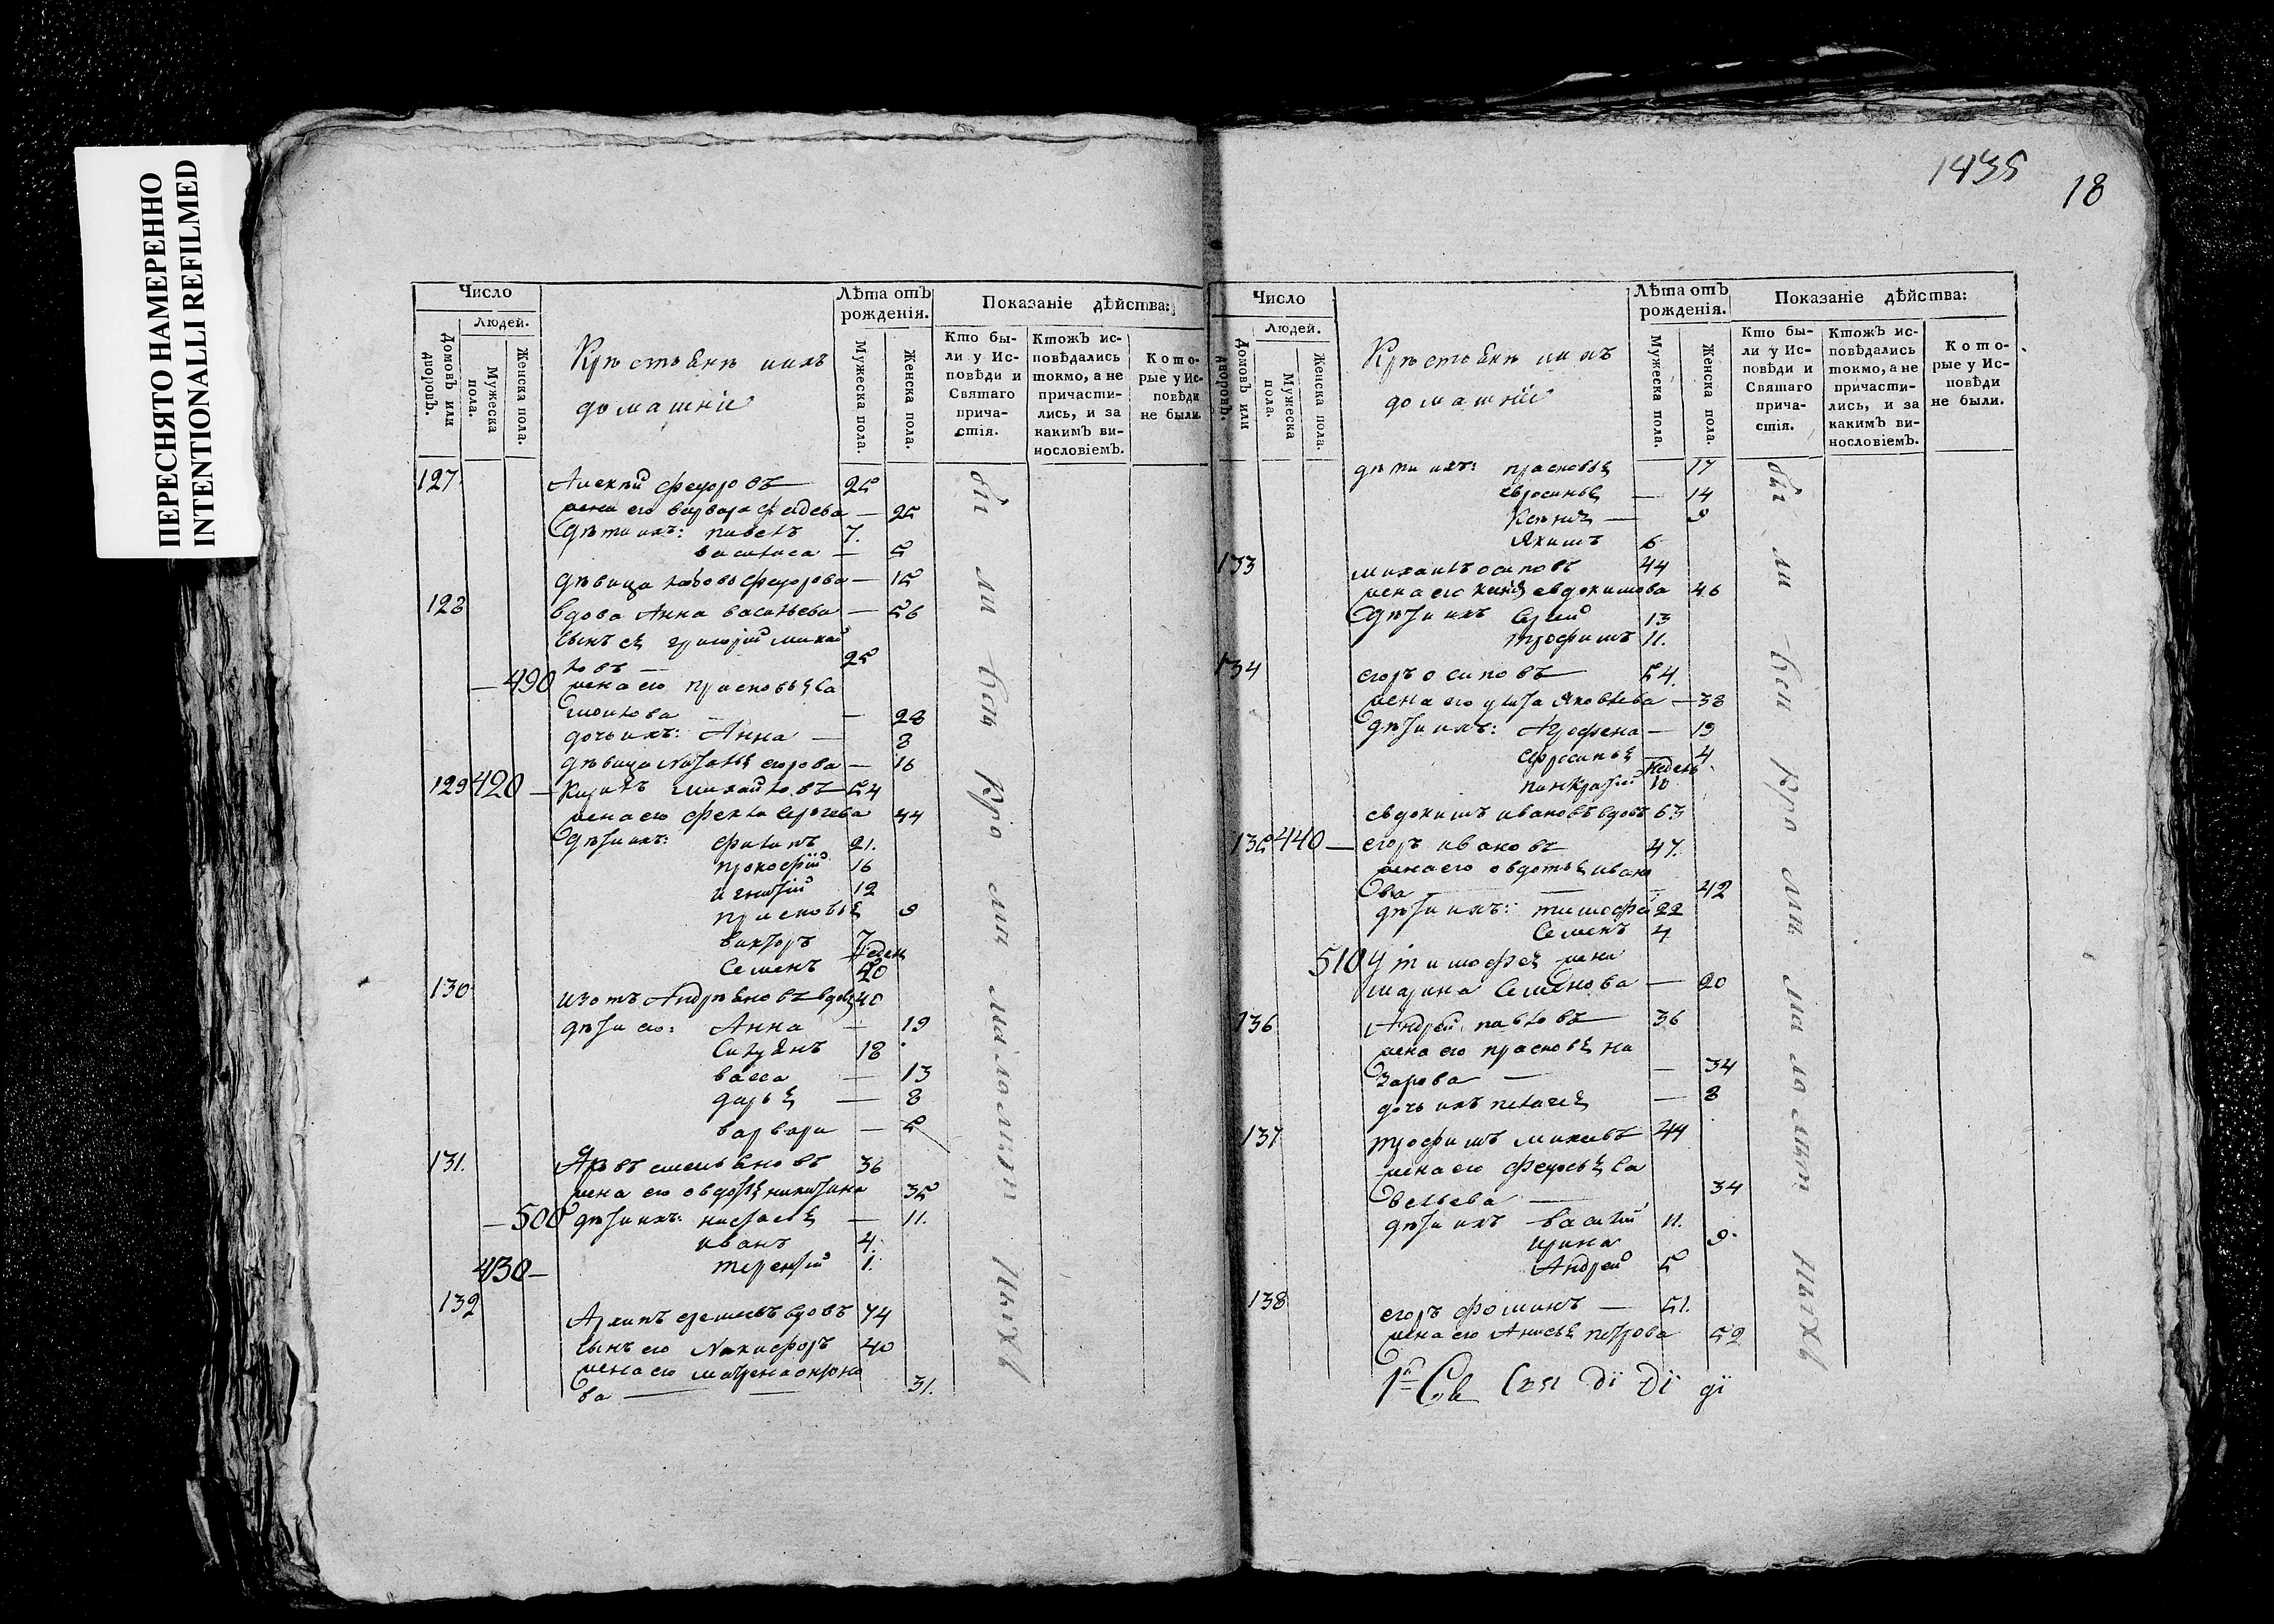 ПЕРЕСНЯТО НАМЕРЕННО
INTENTIONALLI REFILMED
Число
Людей.
Домовъ или дворовъ.
Мужеска пола.
Женска пола.
Крестьяне и ихъ
домашніе
Лѣта отъ рожденія.
Мужеска пола.
Женска пола.
Показаніе дѣйства:
Кто были у Исповѣди и Святаго причастія.
Ктожъ исповѣдались токмо, а не причастились, и за какимъ винословіемъ.
Которые у Исповѣди не были.
127 Алексѣй федоровъ 25
жена его варвара — 25
дѣти ихъ: павелъ 7.
василиса — 5
дѣвица любовь федорова — 15
128 вдова Анна васильева — 56
сынъ ея григорій михай
ловъ — 25
— 490 жена его прасковья са
мойлова — 28
дочь ихъ: Анна — 8
дѣвица Наталья егорова — 16
129 420 — Кирилъ михайловъ 54
жена его фекла сергеева 44
дѣти ихъ: филипъ 21.
прокофій 16
игнатій 12
прасковья 9
викторъ 7.
Семенъ недель 20
130 изотъ Андреяновъ вдовъ 40
дѣти его: Анна — 19
Силуянъ 18
васса — 13
дарья — 8
варвара — 5
131. емельяновъ 36
жена его овдотья никитина 35
— 500 дѣти ихъ: настасья — 11.
иванъ 4.
430 — терентій 1.
132 Архипъ вдовъ 74
сынъ его Никифоръ 40
жена его матрена
ва — 31.
бы ли вси кро мѣ ма ло лѣт ныхъ
1435
18
Число
Людей.
Домовъ или дворовъ.
Мужеска пола.
Женска пола.
Крестьяне и ихъ
домашніе
Лѣта отъ рожденія.
Мужеска пола.
Женска пола.
Показаніе дѣйства:
Кто были у Исповѣди и Святаго причастія.
Ктожъ исповѣдались токмо, а не причастились, и за какимъ винословіемъ.
Которые у Исповѣди не были.
дѣти ихъ: прасковья 17
евросинья — 14
Ксенія — 9
Якимъ 6
133 михаилъ осиповъ 44
жена его евдокимова 46
дѣти ихъ Сергей 13
трофимъ 11.
134 егоръ осиповъ 54.
жена его улита Яковлева — 38
дѣти ихъ: Агрофена — 19
ефросинья — 4
панкратій недель 10
евдокимъ ивановъ вдовъ 63
135 440 — егоръ ивановъ 47.
жена его овдотья ивано
ва — 42
дѣти ихъ: тимофей 22
Семенъ 4
510 у тимофея жена
марина Семенова — 20
136 Андрей павловъ 36
жена его прасковья на
зарова — 34
дочь ихъ пелагея — 8
137 трофимъ 44
жена его федосья са
вельева — 34
дѣти ихъ василій 11.
ирина 9.
Андрей 5
138 егоръ фоминъ — 51.
жена его Анисья петрова 52
бы ли вси кро мѣ ма ло лѣт ныхъ